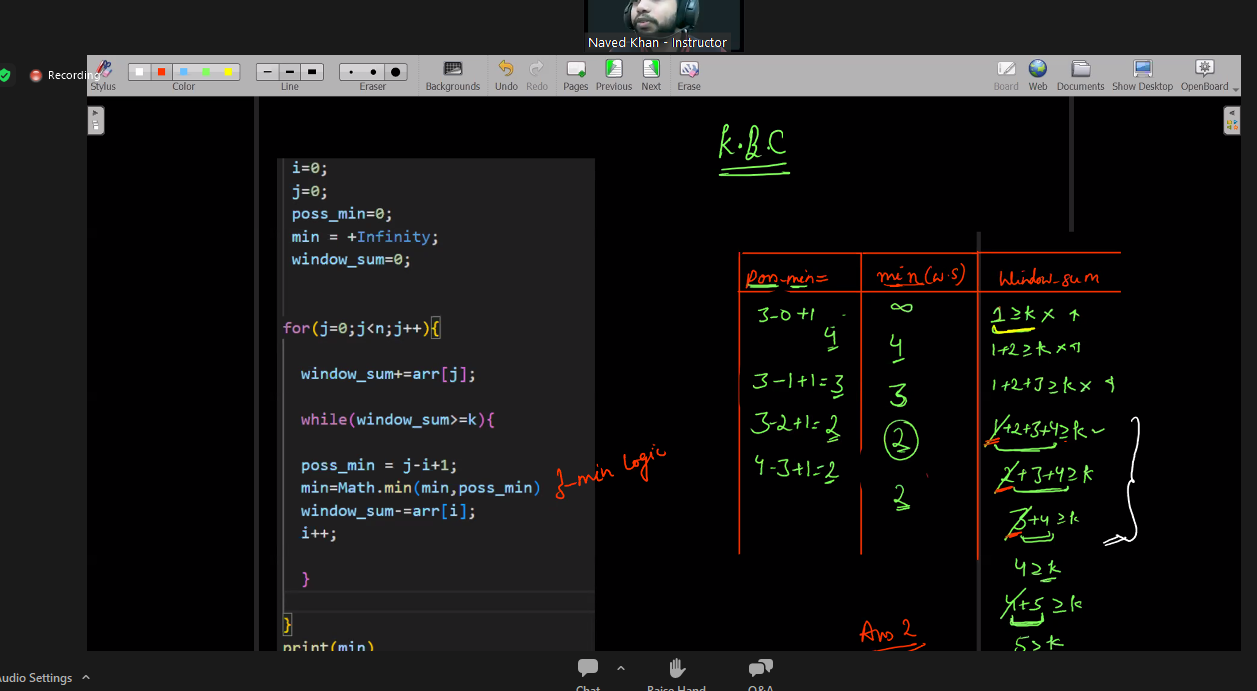 Naved Khan - Instructor
Recording
Stylus Color Line Eraser Backgrounds Undo Redo Pages Previous Next Erase Board Web Documents Show Desktop OpenBoard
K.B.C
i=0;
j=0;
poss_min=0;
min = +Infinity;
window_sum=0;
for(j=0;j<n;j++){
window_sum+=arr[j];
while(window_sum>=k){
poss_min = j-i+1;
min=Math.min(min,poss_min)
window_sum-=arr[i];
i++;
}
}
print(min)
}-min logic
pos-min= min(w.s) Window-sum
3-0+1 ∞ 1≥k × ↑
4 4 1+2≥k × ↑
3-1+1=3 3 1+2+3≥k × ↑
3-2+1=2 2 1+2+3+4≥k ✓
4-3+1=2 2 2+3+4≥k
3+4≥k
4≥k
4+5≥k
5≥k
Ans 2
Audio Settings
Chat Raise Hand Q&A